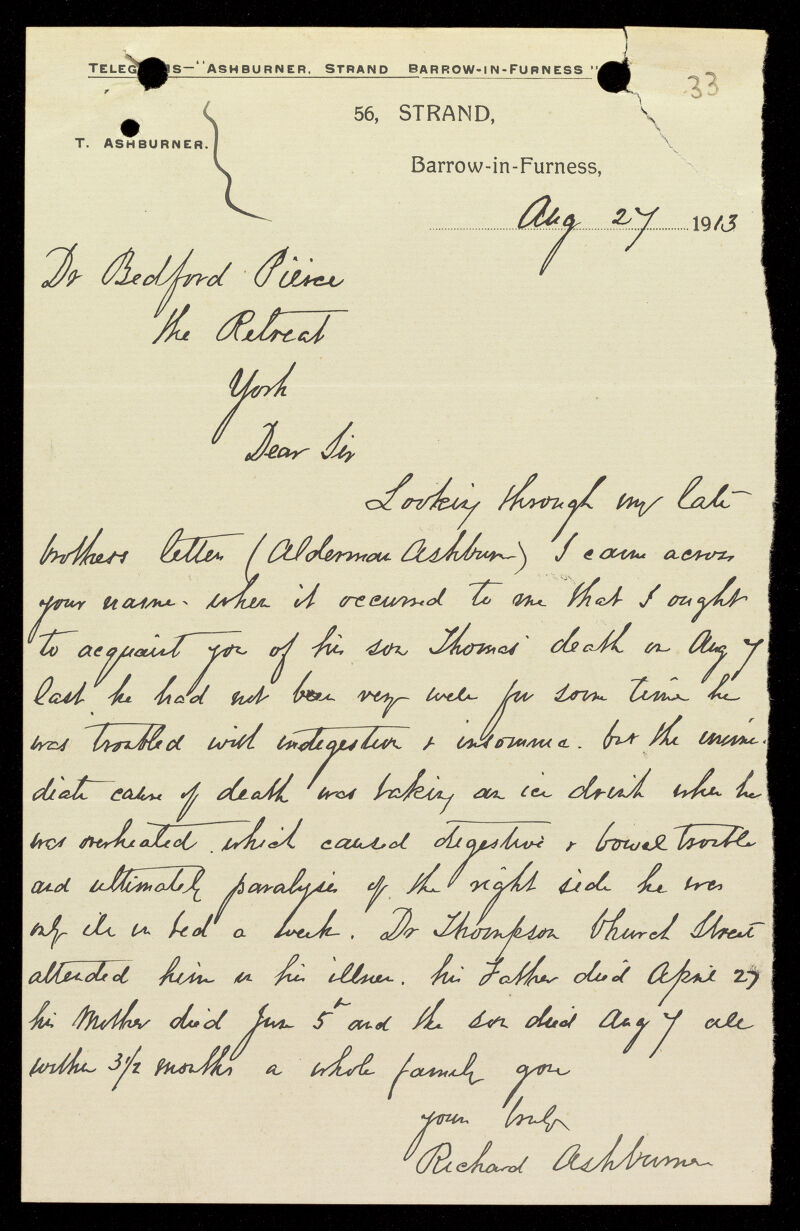 TELEG S—"ASHBURNER, STRAND BARROW-IN-FURNESS"
33
56, STRAND,
T. ASHBURNER.
Barrow-in-Furness,
Aug 27 1913
Dr Bedford Pierce
the Retreat
York
Dear Sir
Looking through my late
brothers letters (Alderman Ashburner) I came across
your name - when it occurred to me that I ought
to acquaint you of his son Thomas' death on Aug 7
last he had not been very well for some time he
was troubled with indegestion & insomnia. but the imme-
diate cause of death was taking an ice drink when he
was overheated. which caused digestive & bowel trouble
and ultimately paralysis of the right side he was
only ill in bed a week. Dr Thompson Church Street
attended him in his illness. his Father died April 27
his Mother died June 5th and the son died Aug 7 all
within 3 1/2 months a whole family gone
yours truly
Richard Ashburner